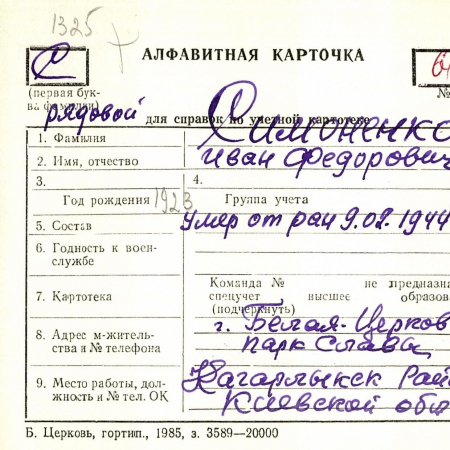 1325
АЛФАВИТНАЯ КАРТОЧКА
С
(первая бук-
ва фамилии)
№
рядовой
для справок по учетной картотеке
1. Фамилия Симоненко
2. Имя, отчество Иван Федорович
3.
Год рождения 1923
4.
Группа учета
5. Состав умер от ран 9.02.1944
6. Годность к воен-
службе
7. Картотека
Команда № не предназна
спецучет высшее образова
(подчеркнуть)
8. Адрес м-житель-
ства и № телефона
г. Белая-Церков
парк Славы
9. Место работы, дол-
жность и № тел. ОК
Кагарлыкск Рай
Киевской обл
Б. Церковь, гортип., 1985, з. 3589—20000